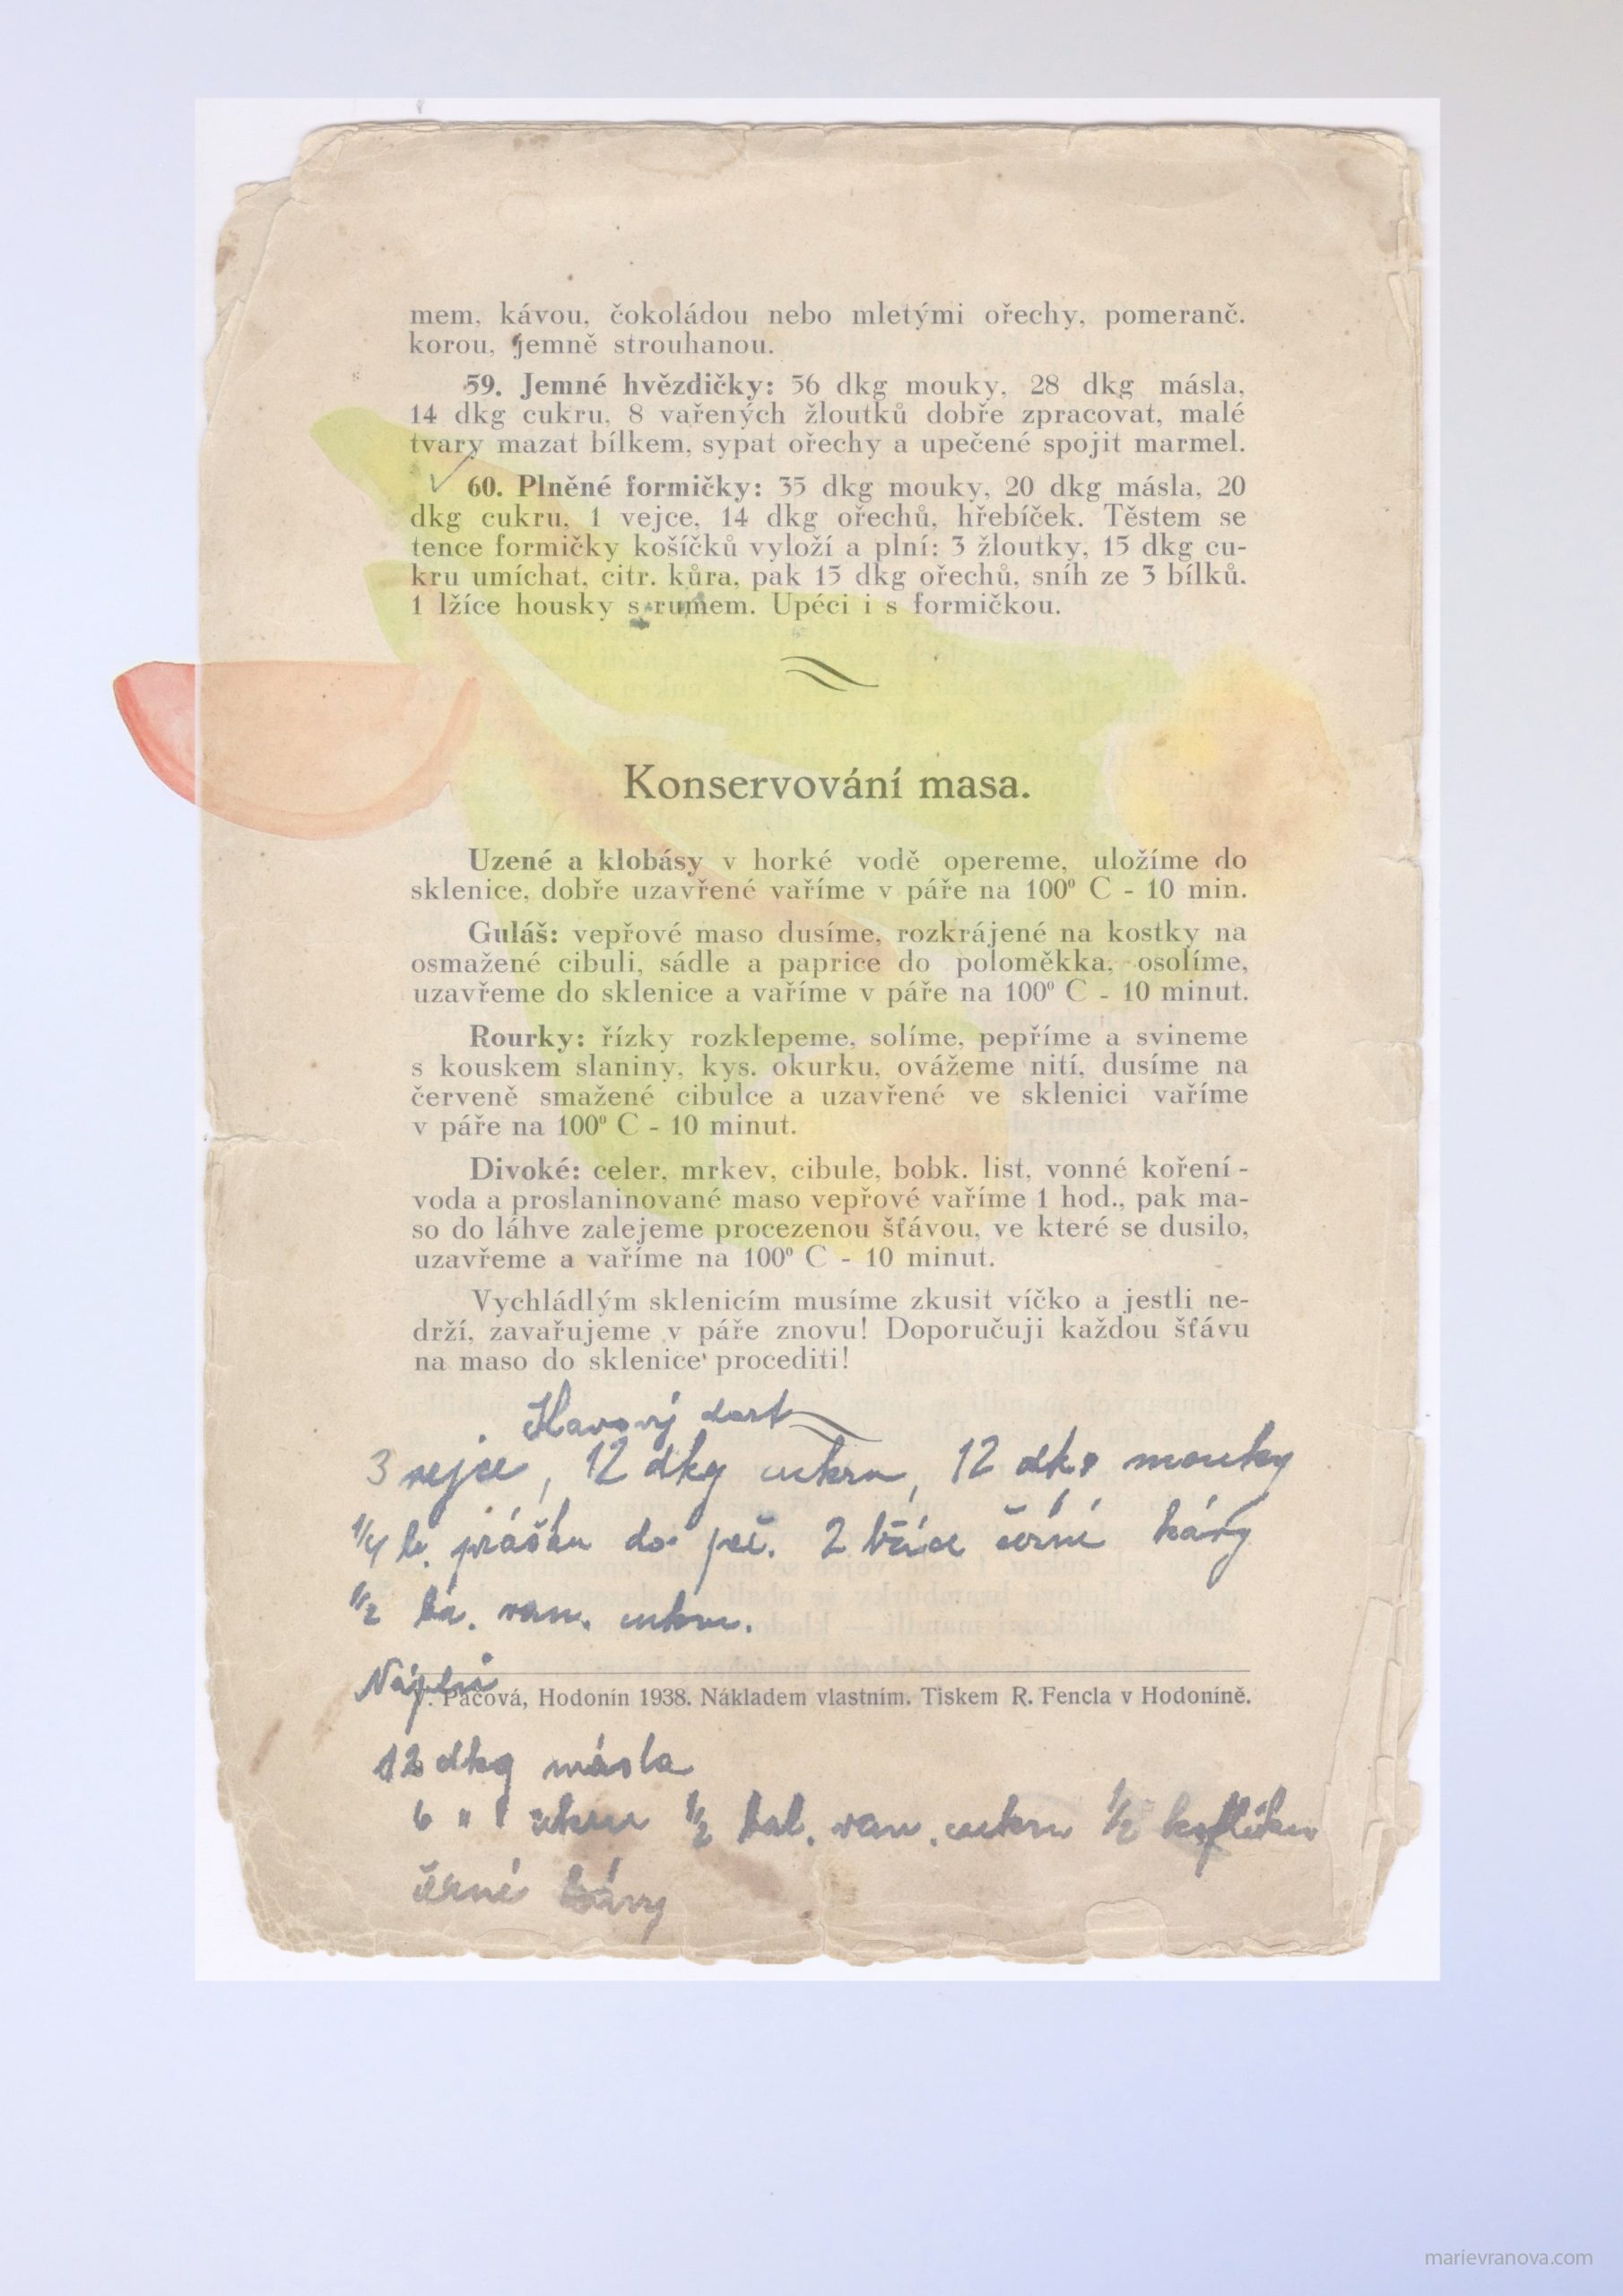 mem, kávou, čokoládou nebo mletými ořechy, pomeranč.
korou, jemně strouhanou.
59. Jemné hvězdičky: 56 dkg mouky, 28 dkg másla,
14 dkg cukru, 8 vařených žloutků dobře zpracovat, malé
tvary mazat bílkem, sypat ořechy a upečené spojit marmel.
60. Plněné formičky: 35 dkg mouky, 20 dkg másla, 20
dkg cukru, 1 vejce, 14 dkg ořechů, hřebíček. Těstem se
tence formičky košíčků vyloží a plní: 3 žloutky, 15 dkg cu-
kru umíchat, citr. kůra, pak 15 dkg ořechů, sníh ze 3 bílků.
1 lžíce housky s rumem. Upéci i s formičkou.
Konservování masa.
Uzené a klobásy v horké vodě opereme, uložíme do
sklenice, dobře uzavřené vaříme v páře na 100⁰ C - 10 min.
Guláš: vepřové maso dusíme, rozkrájené na kostky na
osmažené cibuli, sádle a paprice do poloměkka, osolíme,
uzavřeme do sklenice a vaříme v páře na 100⁰ C - 10 minut.
Rourky: řízky rozklepeme, solíme, pepříme a svineme
s kouskem slaniny, kys. okurku, ovážeme nití, dusíme na
červeně smažené cibulce a uzavřené ve sklenici vaříme
v páře na 100⁰ C - 10 minut.
Divoké: celer, mrkev, cibule, bobk. list, vonné koření -
voda a proslaninované maso vepřové vaříme 1 hod., pak ma-
so do láhve zalejeme procezenou šťávou, ve které se dusilo,
uzavřeme a vaříme na 100⁰ C - 10 minut.
Vychládlým sklenicím musíme zkusit víčko a jestli ne-
drží, zavařujeme v páře znovu! Doporučuji každou šťávu
na maso do sklenice procediti!
Kavový dort
3 vejce, 12 dkg cukru, 12 dkg mouky
1/4 b. prášku do peč. 2 lžíce černé kávy
1/2 ba. van. cukru.
Náplň
V. Pacová, Hodonín 1938. Nákladem vlastním. Tiskem R. Fencla v Hodoníně.
12 dkg másla
6 " cukru 1/2 bal. van. cukru 1/2 koflíku
černé kávy
marievranova.com